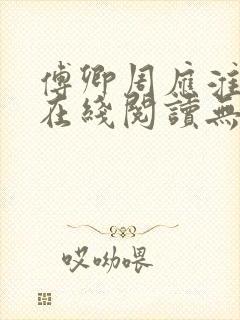 傅卿周應淮
在綫閱讀無
哎呦喂